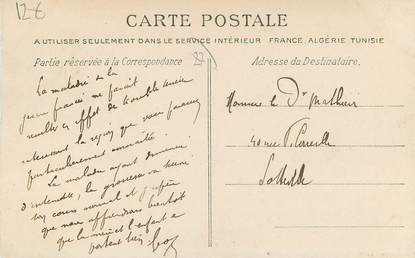 12€
CARTE POSTALE
A UTILISER SEULEMENT DANS LE SERVICE INTÉRIEUR FRANCE, ALGÉRIE, TUNISIE
Partie réservée à la Correspondance
27
Adresse du Destinataire.
La maladie de la
jeune
en effet de trouble
la region que vous
particulierement
La malade ayant
d'intensité, la grossesse va suivre
son cours normal et j'espère
que nous apprendrons bientôt
que la mère et l'enfant se
portent bien
Monsieur le Dr Mathieu
40 rue P. Corneille
Sotteville